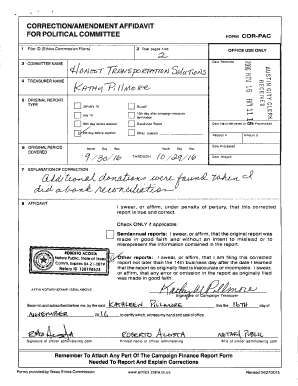 CORRECTION/AMENDMENT AFFIDAVIT
FOR POLITICAL COMMITTEE
FORM COR-PAC
1 Filer ID (Ethics Commission Filers)
2 Total pages filed:
2
OFFICE USE ONLY
3 COMMITTEE NAME
Honest Transportation Solutions
Date Received
AUSTIN CITY CLERK
RECEIVED
2016 NOV 16
4 TREASURER NAME
Kathy Pillmore
5 ORIGINAL REPORT
TYPE
January 15
Runoff
July 15
10th day after campaign treasurer
termination
30th day before election
Dissolution Report
8th day before election
Other (specify)
Receipt #
Amount $
Date Processed
6 ORIGINAL PERIOD
COVERED
Month Day Year
9/30/16
THROUGH
Month Day Year
10/29/16
Date Imaged
7 EXPLANATION OF CORRECTION
Additional donations were found when I
did a bank reconciliation
8 AFFIDAVIT
I swear, or affirm, under penalty of perjury, that this corrected
report is true and correct.
Check ONLY if applicable:
Semiannual reports: I swear, or affirm, that the original report was
made in good faith and without an intent to mislead or to
misrepresent the information contained in the report.
Other reports: I swear, or affirm, that I am filing this corrected
report not later than the 14th business day after the date I learned
that the report as originally filed is inaccurate or incomplete. I swear,
or affirm, that any error or omission in the report as originally filed
was made in good faith.
ROBERTO ACOSTA
Notary Public, State of Texas
AFFIX NOTARY STAMP / SEAL ABOVE
Kathy W Pillmore
Signature of Campaign Treasurer
Sworn to and subscribed before me, by the said KATHLEEN PILLMORE this the 16th day of
NOVEMBER 20 16 to certify which, witness my hand and seal of office.
ROBERTO ACOSTA
NOTARY PUBLIC
Signature of officer administering oath
Printed name of officer administering oath
Title of officer administering oath
Remember To Attach Any Part Of The Campaign Finance Report Form
Needed To Report And Explain Corrections
Forms provided by Texas Ethics Commission
www.ethics.state.tx.us
Revised 04/27/2015